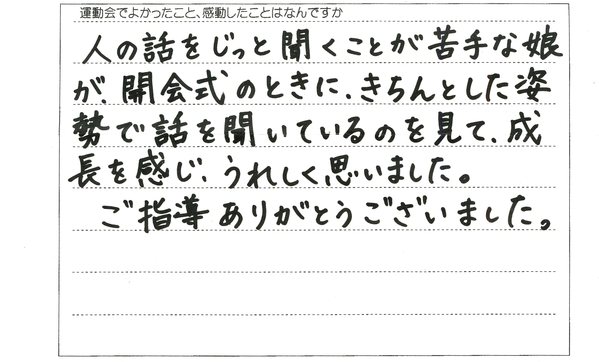 運動会でよかったこと、感動したことはなんですか
人の話をじっと聞くことが苦手な娘
が、開会式のときに、きちんとした姿
勢で話を聞いているのを見て、成
長を感じ、うれしく思いました。
ご指導ありがとうございました。